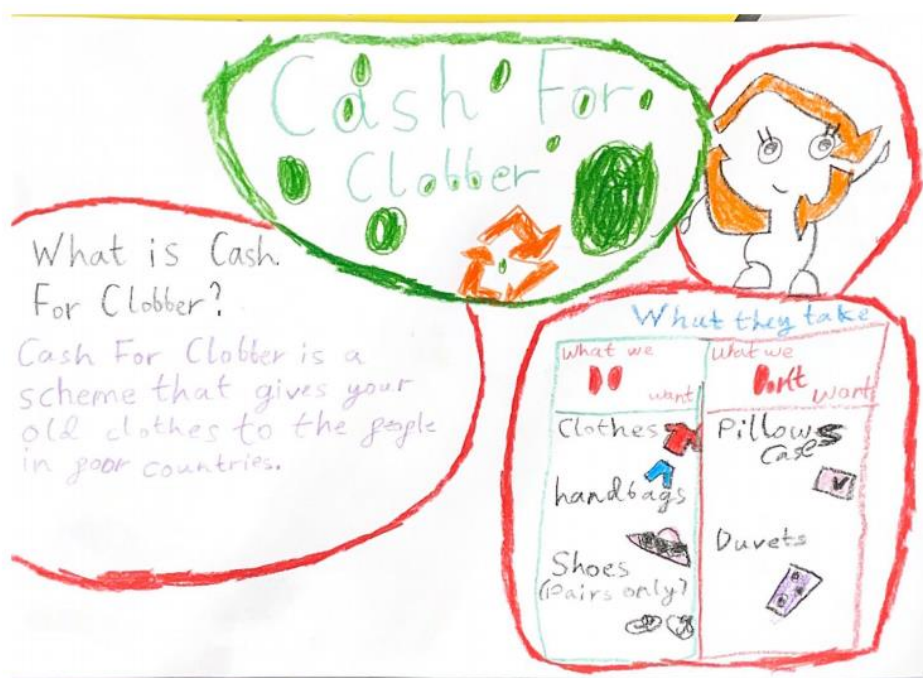 Cash For
Clobber
What is Cash
For Clobber?
Cash For Clobber is a
scheme that gives your
old clothes to the people
in poor countries.
What they take
What we
DO
want
What we
Don't
want
Clothes
handbags
Shoes
(Pairs only)
Pillows
Cases
Duvets